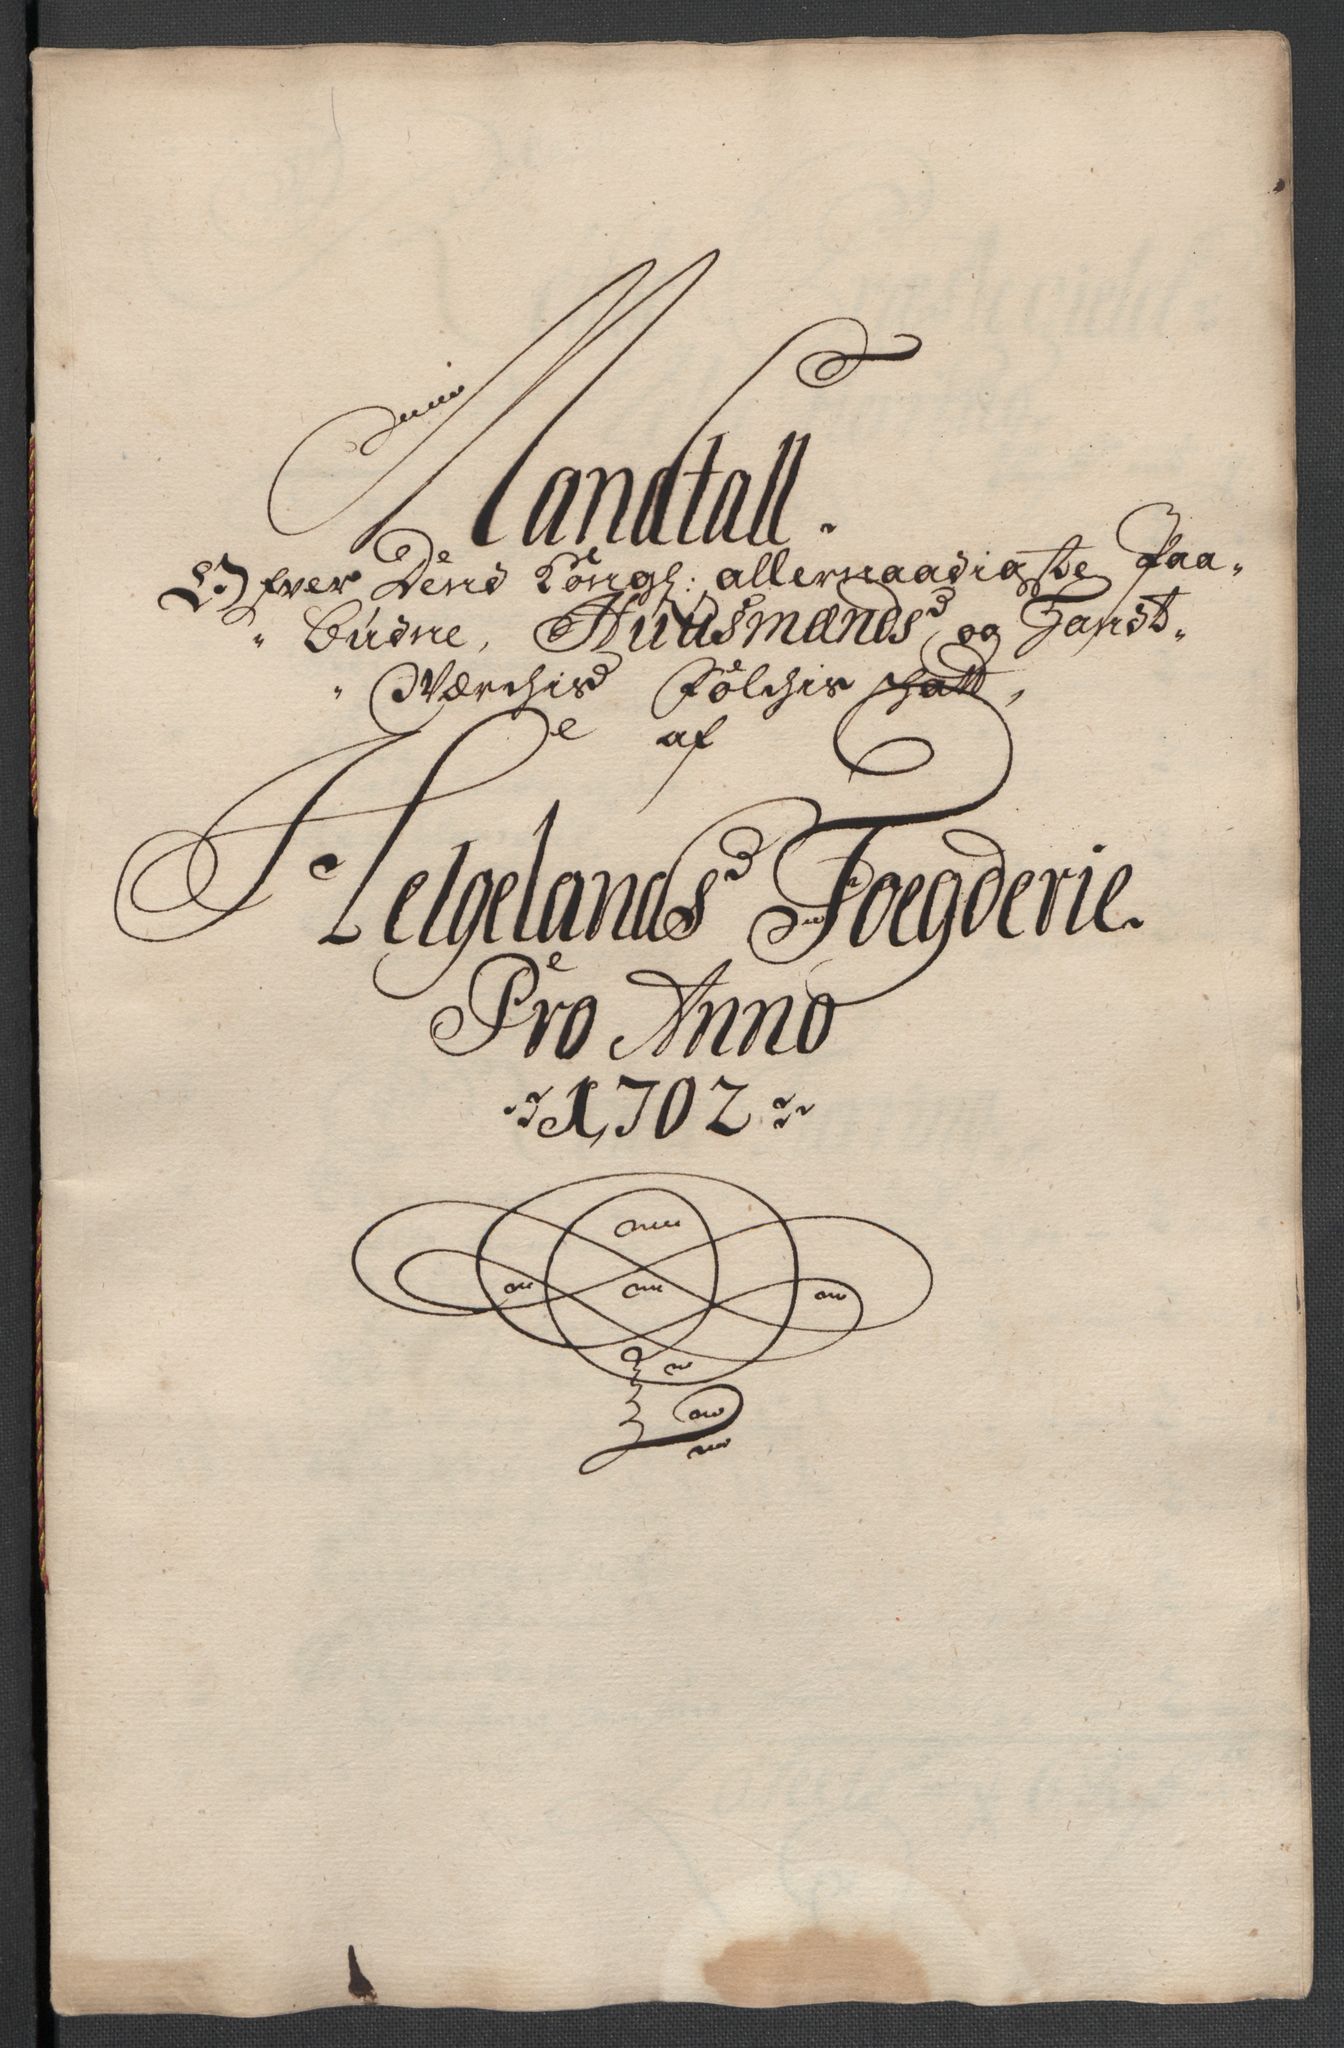 Mandtall.
Ofver Dend Kongl: allernaadigste Paa-
budne, Huusmænds og Handt-
Værchis Folchis schatt,
af
Helgelands Foegderie.
Pro Anno
1702